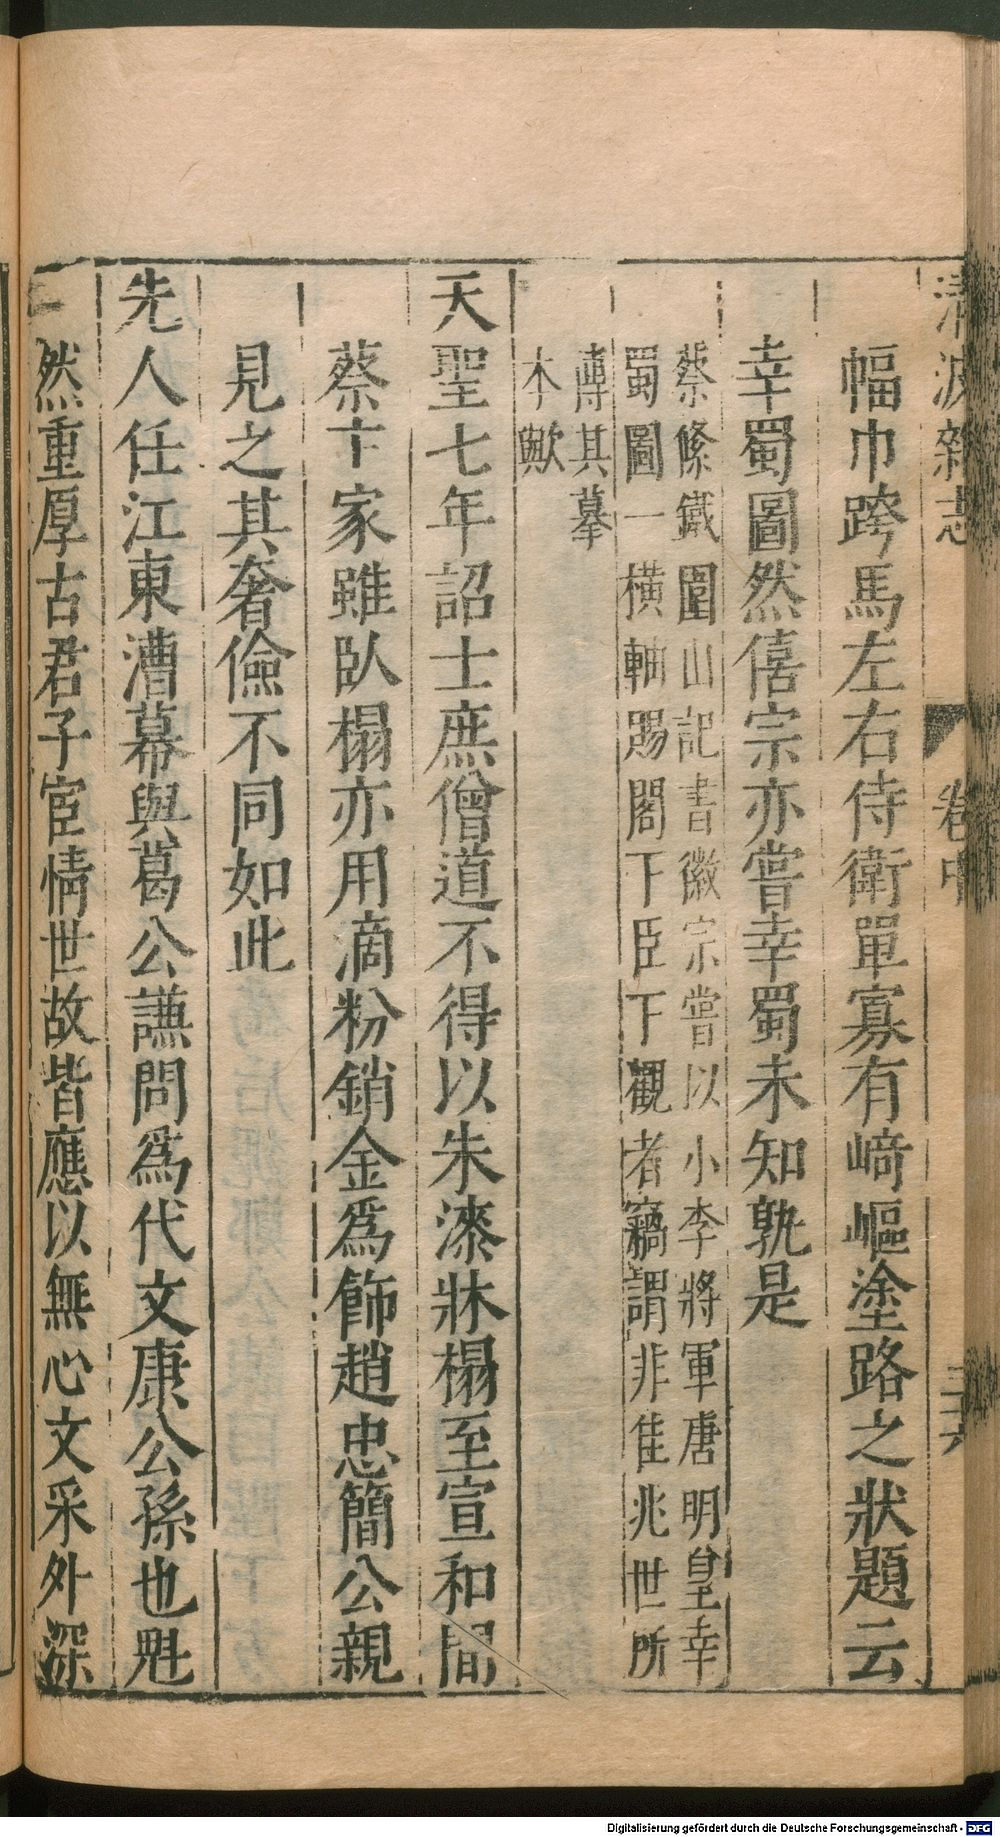 清波雜志
卷中
三十六
幅巾跨馬左右侍衛單寡有﨑嶇塗路之狀題云
幸蜀圖然僖宗亦嘗幸蜀未知孰是
蔡絛鐵圍山記書徽宗嘗以小李將軍唐明皇幸
蜀圖一橫軸賜閣下臣下觀者竊謂非佳兆世所
傳其摹
木歟
天聖七年詔士庶僧道不得以朱漆牀榻至宣和間
蔡卞家雖臥榻亦用滴粉銷金爲飾趙忠簡公親
見之其奢儉不同如此
先人任江東漕幕與葛公謙問爲代文康公孫也魁
然重厚古君子宦情世故皆應以無心文采外深
Digitalisierung gefördert durch die Deutsche Forschungsgemeinschaft - DFG